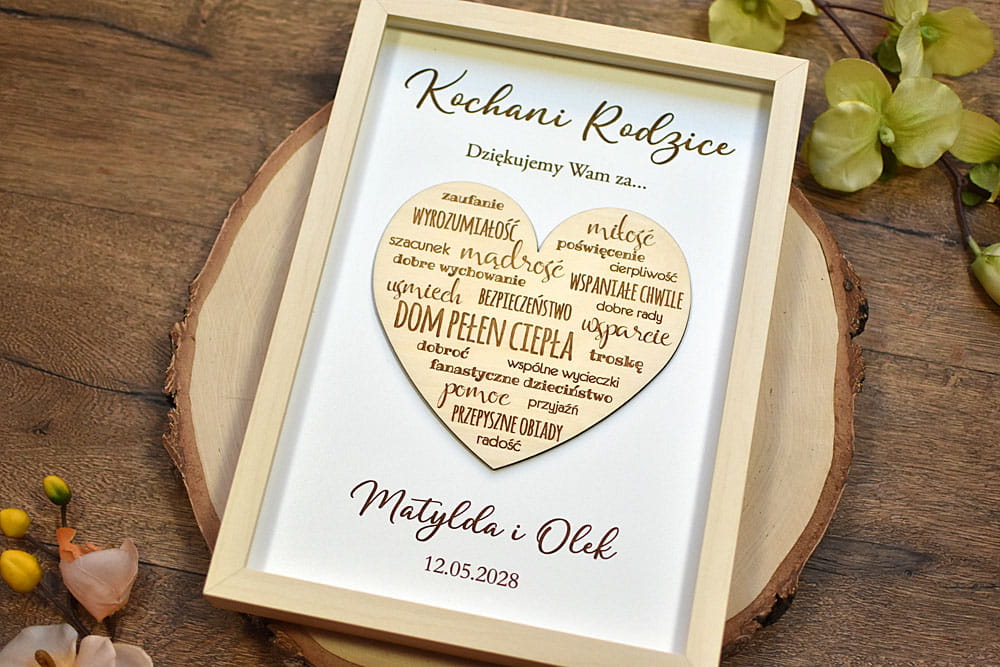 Kochani Rodzice
Dziękujemy Wam za...
zaufanie
WYROZUMIAŁOŚĆ
miłość
szacunek mądrość poświęcenie
dobre wychowanie cierpliwość
uśmiech BEZPIECZEŃSTWO WSPANIAŁE CHWILE
dobre rady
DOM PEŁEN CIEPŁA wsparcie
dobroć wspólne wycieczki troskę
fanastyczne dzieciństwo
pomoc przyjaźń
PRZEPYSZNE OBIADY
radość
Matylda i Olek
12.05.2028